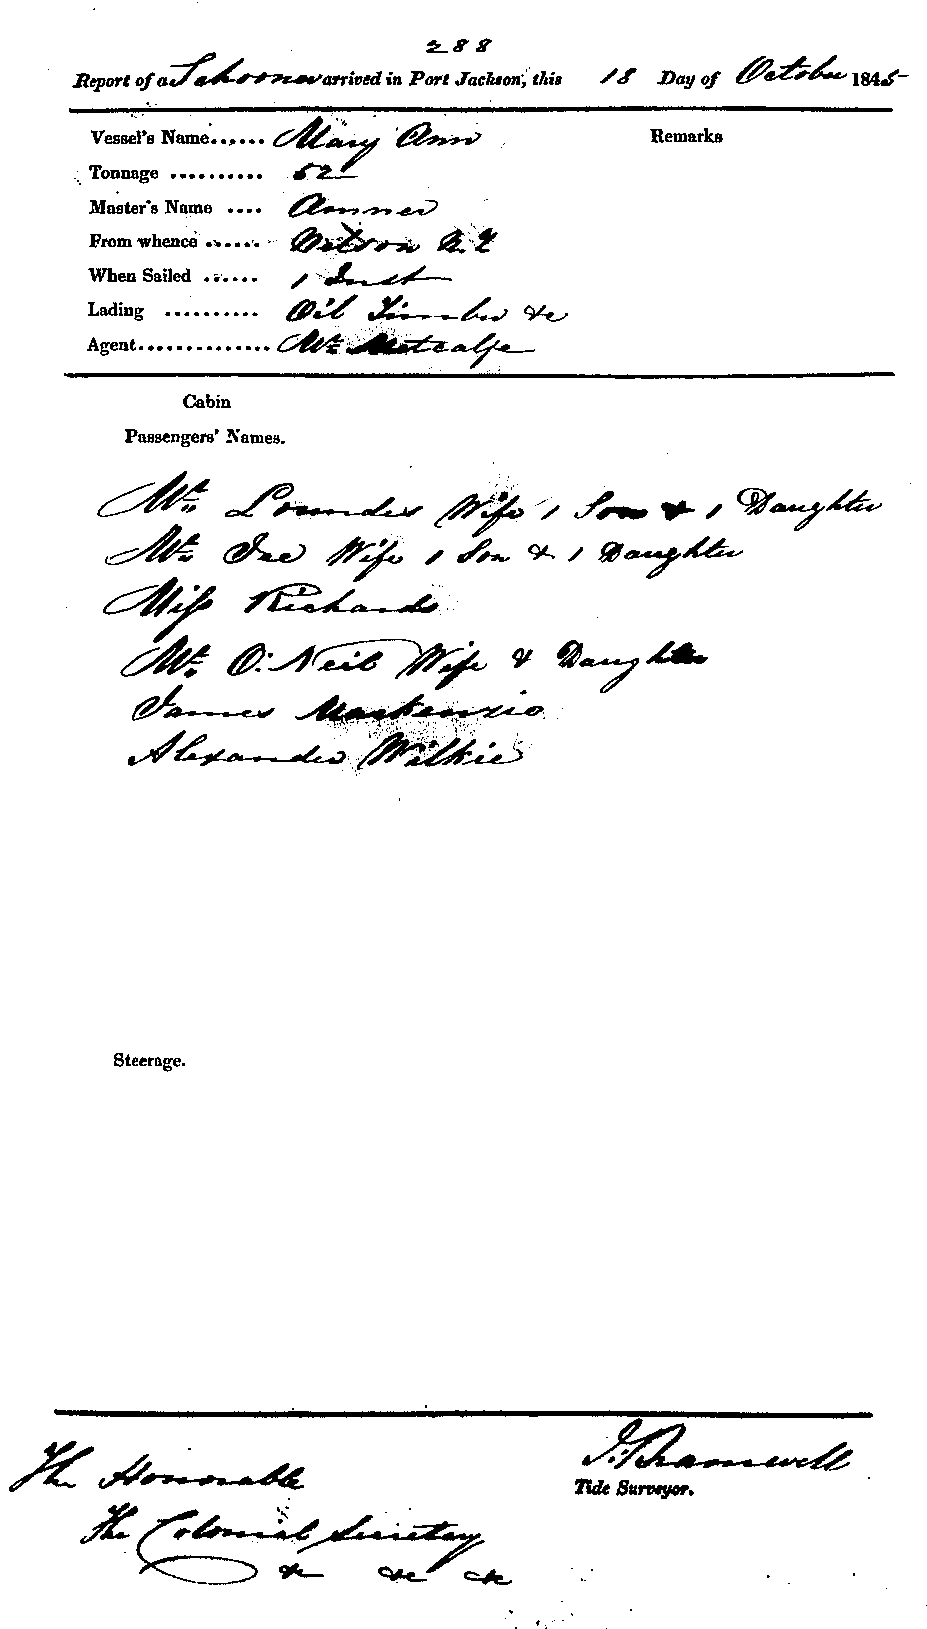 288
Report of a Schooner arrived in Port Jackson, this 18 Day of October 1845
Vessel's Name...... Mary Ann Remarks
Tonnage .......... 52
Master's Name .... Ammer
From whence ...... Nelson N. Z
When Sailed ...... 1 Inst
Lading .......... Oil Timber &c
Agent.............. Mr. Metcalfe
Cabin
Passengers' Names.
Mr. Lowndes Wife 1 Son & 1 Daughter
Mr. Wife 1 Son & 1 Daughter
Miss Richards
Mr. O'Neil Wife & Daughter
James Mackenzie
Alexander Wilkie
Steerage.
J. Bramwell
Tide Surveyor.
The Honorable
The Colonial Secretary
&c &c &c